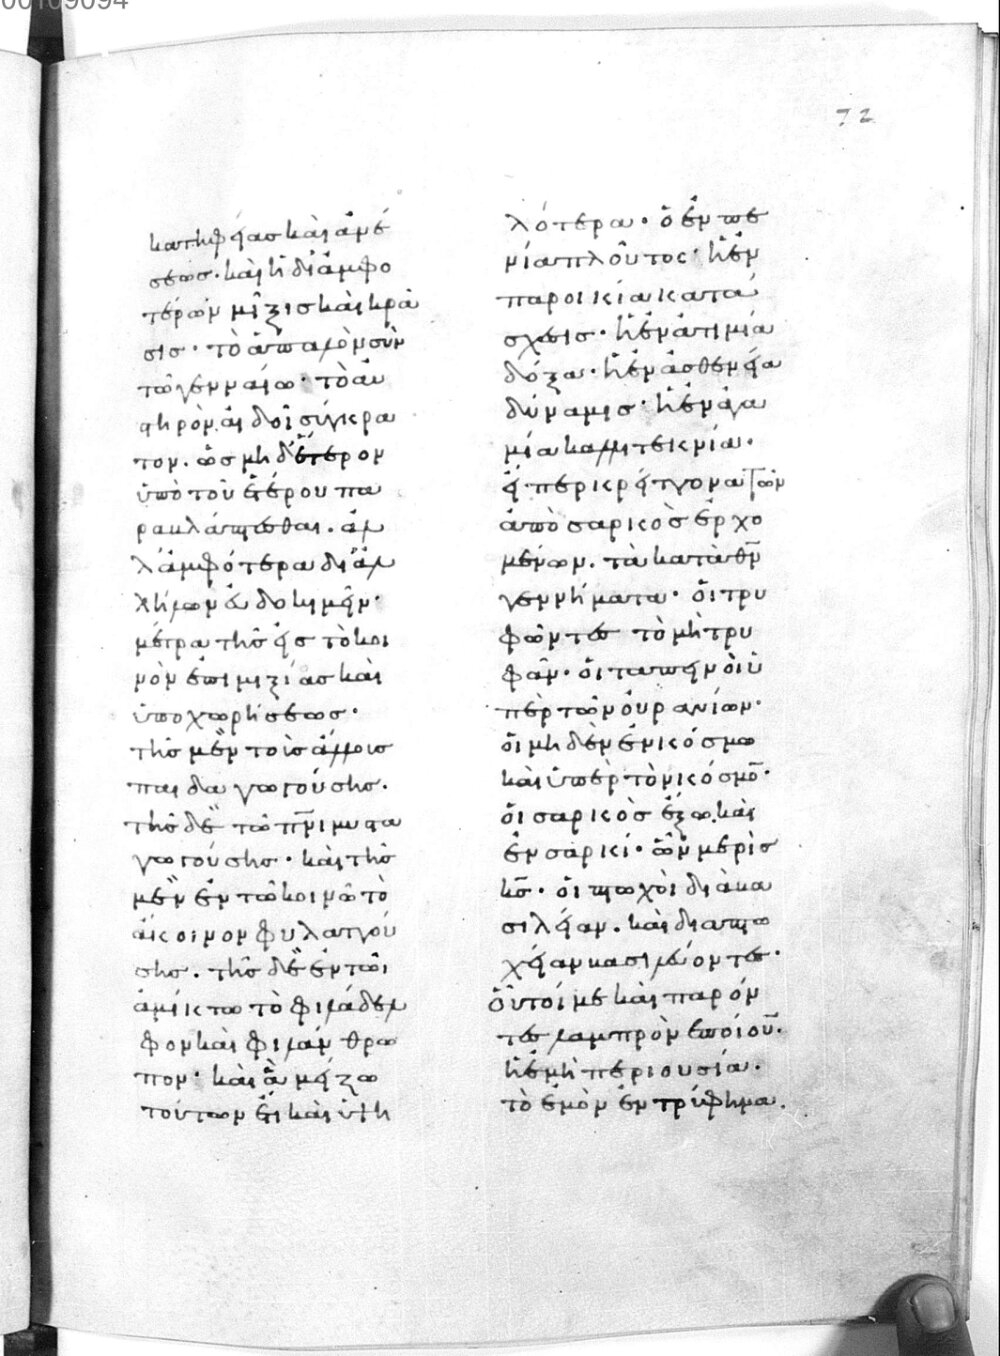 72
κατηφείας καὶ ἀνέ
σεως· καὶ ἡ δι ἀμφο
τέρων μίξις καὶ κρᾶ
σις· τὸ ἁπαλὸν σὺν
τῶ γενναίω· τὸ αὐ
στηρὸν αἰδοῖ σύγκρα
τον. ὡς μηδέτερον
ὑπὸ τοῦ ἑτέρου πα
ρακλέπτεσθαι. ἀλ
λ ἀμφότερα δι ἀλ
λήλων εὐδοκιμεῖν·
μέτρα τῆς εἰς τὸ κοι
νὸν ἐπιμιξίας καὶ
ὑποχωρήσεως·
τῆς μὲν τοῖς ἄλλοις
παιδαγωγούσης.
τῆς δὲ τῶ πνι μυστα
γωγούσης· καὶ τῆς
μὲν ἐν τῶ κοινῶ τὸ
ἀκοινον φυλαττού
σης. τῆς δὲ ἐν τῶι
ἀμίκτω τὸ φιλάδελ
φον καὶ φιλάν θρω
πον· καὶ ἃ μείζω
τούτων ἔτι καὶ ὑψη
λότερα· ὁ ἐν πε
νία πλοῦτος· ἡ ἐν
παροικία κατά
σχεσις· ἡ ἐν ἀτιμία
δόξα· ἡ ἐν ἀσθενεία
δύναμις· ἡ ἐν ἀγα
μία καλλιτεκνία·
εἰ περ κρείττονα τῶν
ἀπὸ σαρκὸς ἐρχο
μένων. τὰ κατὰ θν
γεννήματα· οἱ τρυ
φῶντες τὸ μὴ τρυ
φᾶν· οἱ ταπεινοὶ ὑ
πὲρ τῶν οὐρανίων·
οἱ μηδὲν ἐν κόσμω
καὶ ὑπὲρ τὸν κόσμον·
οἱ σαρκὸς ἔξω, καὶ
ἐν σαρκί· ὧν μερὶς
κς· οἱ πτωχοὶ διὰ βα
σιλείαν. καὶ διαπτω
χείαν βασιλεύοντες·
οὗτοί με καὶ παρόν
τες λαμπρὸν ἐποίουν·
ἡ ἐμὴ περιουσία.
τὸ ἐμὸν ἐντρύφημα.